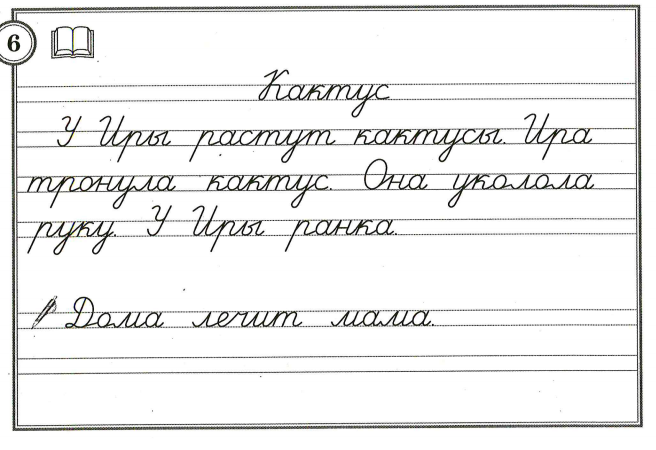 6
Кактус
У Иры растут кактусы. Ира
тронула кактус. Она уколола
руку. У Иры ранка.
Дома лечит мама.